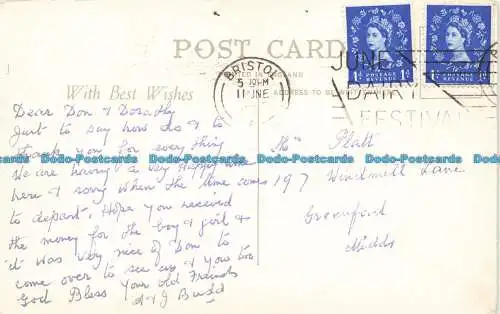 POST CARD
PRINTED IN ENGLAND
ADDRESS TO BE
With Best Wishes
BRISTOL
5 - PM
11 JNE
JUNE
DAIRY
FESTIVAL
POSTAGE REVENUE
1D 1D
POSTAGE REVENUE
1D 1D
Dear Don & Dorothy
Just to say how do & to
thank you for every thing
We are having a very Happy time
here & sorry when the time comes
to depart, Hope you received
the money for the boy & girl &
it was very nice of Don to
come over to see us & you too
God Bless your old Friends
& J
Platt
197 Windmill Lane
Greenford
Middx
Dodo-Postcards Dodo-Postcards Dodo-Postcards Dodo-Postcards Dodo-Postcards